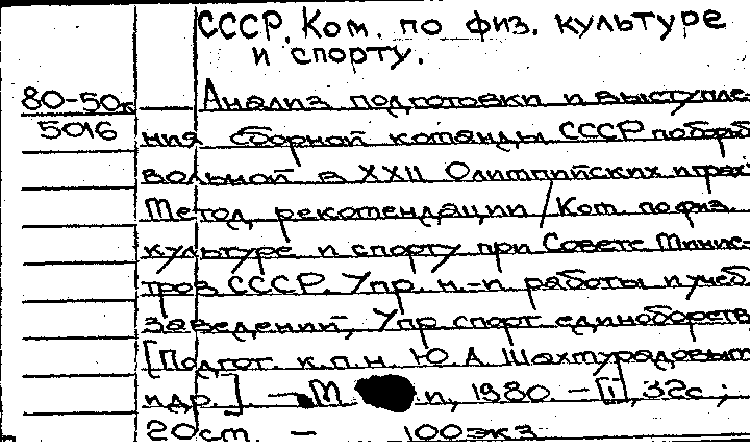 СССР. Ком. по физ. культуре
и спорту.
80-50к Анализ подготовки и выступле-
5016 ния сборной команды СССР по борьб
вольной в XXII Олимпийских играх
Метод. рекомендации / Ком. по физ.
культуре и спорту при Совете Минис-
тров СССР. Упр. н.-и. работы и учеб
заведений, Упр спорт единоборств
[Подгот. к.п.н. Ю.А. Шахмурадовым
и др.] — М п, 1980. – [1], 32с ;
20 см. — 100 экз